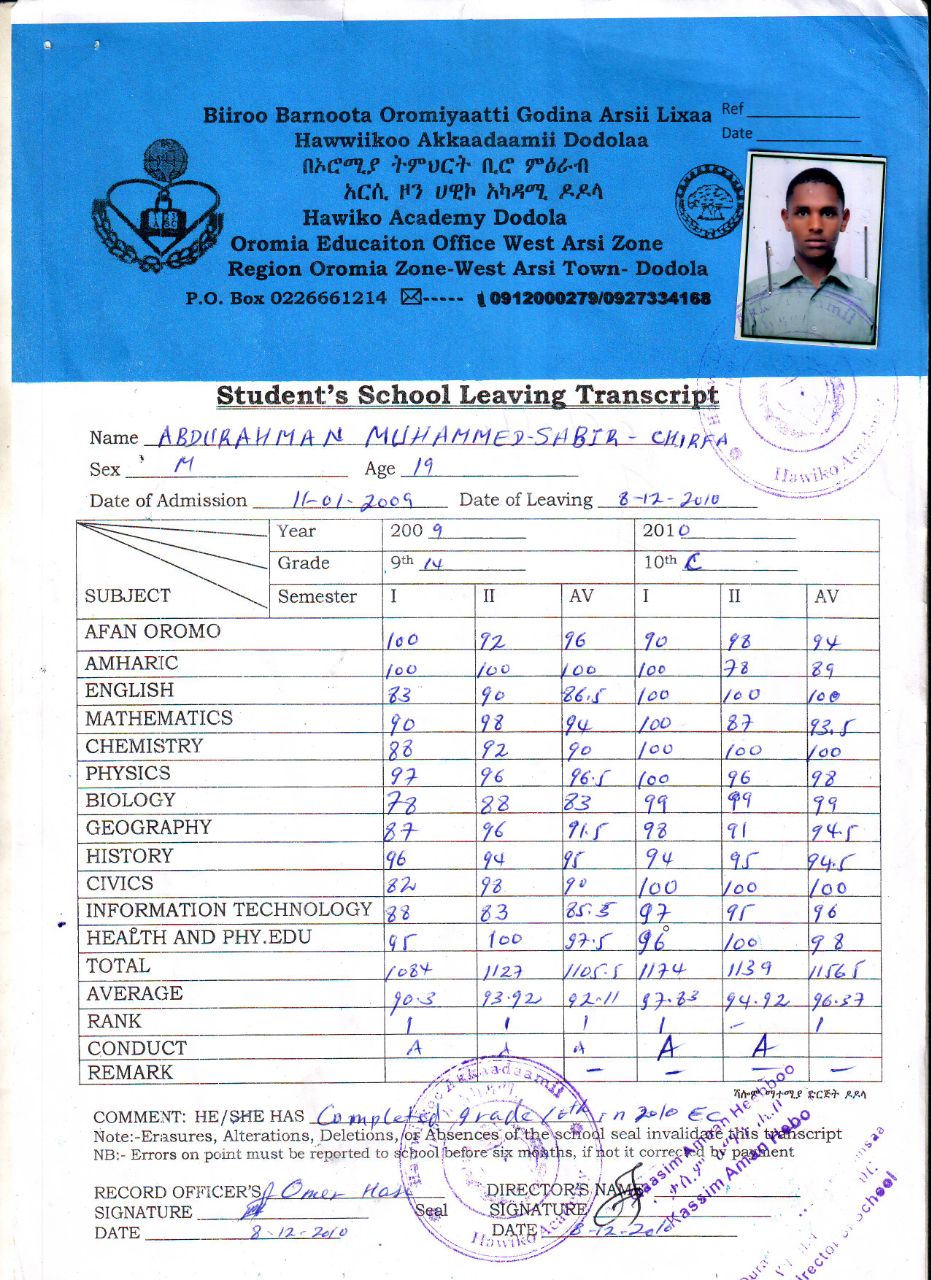 Biiroo Barnoota Oromiyaatti Godina Arsii Lixaa
Ref
Hawwiikoo Akkaadaamii Dodolaa
Date
በኦሮሚያ ትምህርት ቢሮ ምዕራብ
አርሲ ዞን ሀዊኮ አካዳሚ ዶዶላ
Hawiko Academy Dodola
Oromia Educaiton Office West Arsi Zone
Region Oromia Zone-West Arsi Town- Dodola
P.O. Box 0226661214 ----- 0912000279/0927334168
Student's School Leaving Transcript
Name ABDURAHMAN MUHAMMED-SABIR-CHIRFA
Sex M Age 19
Date of Admission 11-01-2009 Date of Leaving 8-12-2010
Year 2009 2010
Grade 9th 14 10th C
SUBJECT Semester I II AV I II AV
AFAN OROMO 100 92 96 90 98 94
AMHARIC 100 100 100 100 78 89
ENGLISH 83 90 86.5 100 100 100
MATHEMATICS 90 98 94 100 87 93.5
CHEMISTRY 88 92 90 100 100 100
PHYSICS 97 96 96.5 100 96 98
BIOLOGY 78 88 83 99 99 99
GEOGRAPHY 87 96 91.5 98 91 94.5
HISTORY 96 94 95 94 95 94.5
CIVICS 82 98 90 100 100 100
INFORMATION TECHNOLOGY 88 83 85.5 97 95 96
HEALTH AND PHY.EDU 95 100 97.5 96 100 98
TOTAL 1084 1127 1105.5 1174 1139 1156.5
AVERAGE 90.3 93.92 92.11 97.83 94.92 96.37
RANK 1 1 1 1 - 1
CONDUCT A A A A A
REMARK - - -
ሻሎም ማተሚያ ድርጅት ዶዶላ
COMMENT: HE/SHE HAS Completed grade 10th in 2010 EC
Note:-Erasures, Alterations, Deletions, or Absences of the school seal invalidate this transcript
NB:- Errors on point must be reported to school before six months, if not it corrected by payment
RECORD OFFICER'S Omer DIRECTOR'S NAME
Kassim Aman Hebo
SIGNATURE Seal SIGNATURE
DATE 8-12-2010 DATE 8-12-2010
Hawiko Aca